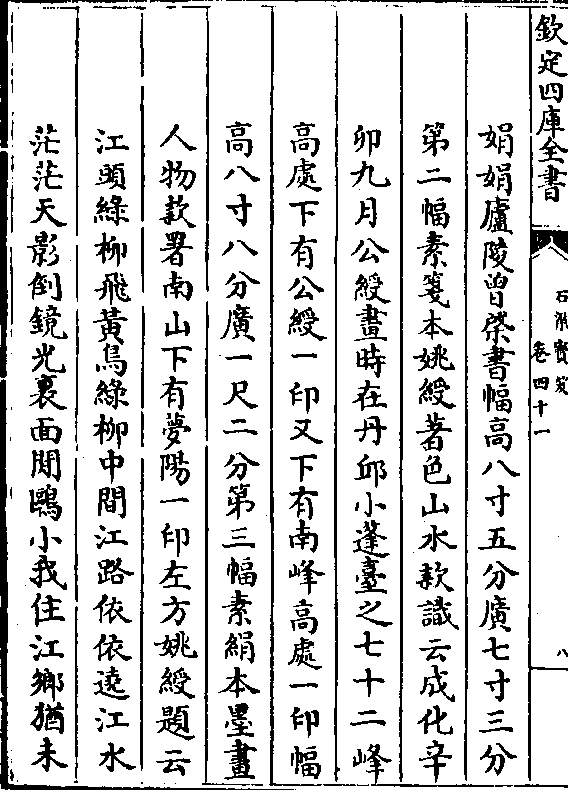 欽定四庫全書
石渠寶笈
卷四十一
八
娟娟廬陵曾棨書幅高八寸五分廣七寸三分
第二幅素箋本姚綬著色山水款識云成化辛
卯九月公綬畫時在丹邱小蓬臺之七十二峰
高處下有公綬一印又下有南峰高處一印幅
高八寸八分廣一尺二分第三幅素絹本墨畫
人物款署南山下有夢陽一印左方姚綬題云
江頭綠柳飛黃鳥綠柳中間江路依依遶江水
茫茫天影倒鏡光裏面閒鷗小我住江鄉猶未